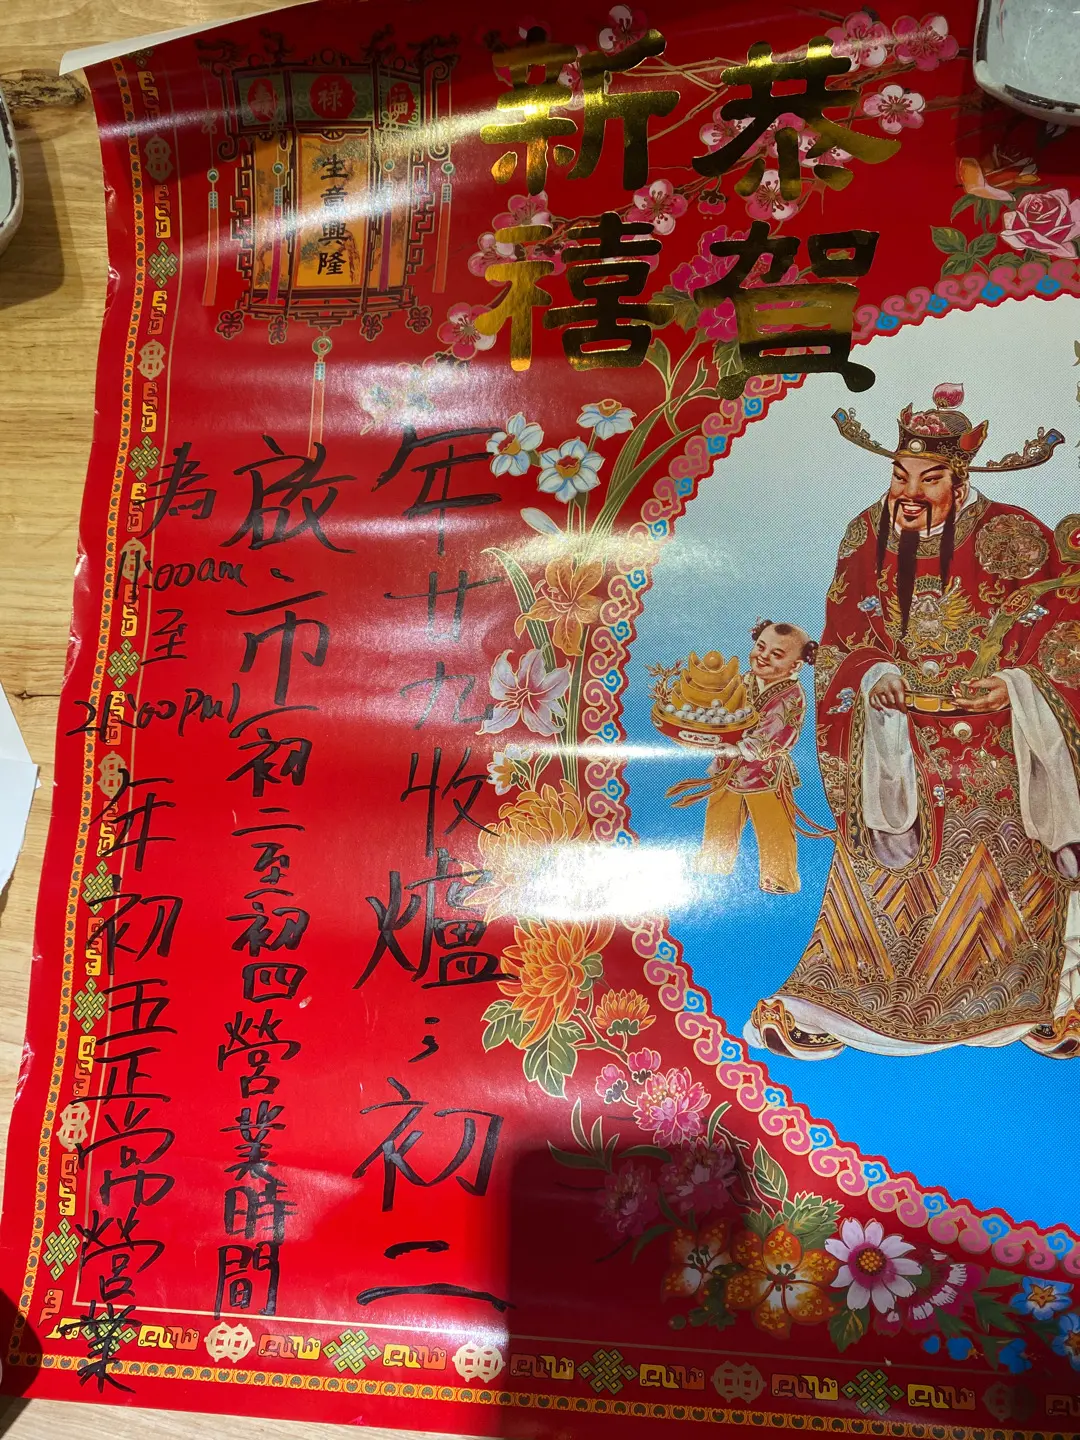 恭賀
新禧
福祿壽
生意興隆
年廿九收爐；初二
啟市初二至初四營業時間
為11:00am至21:00PM年初五正常營業